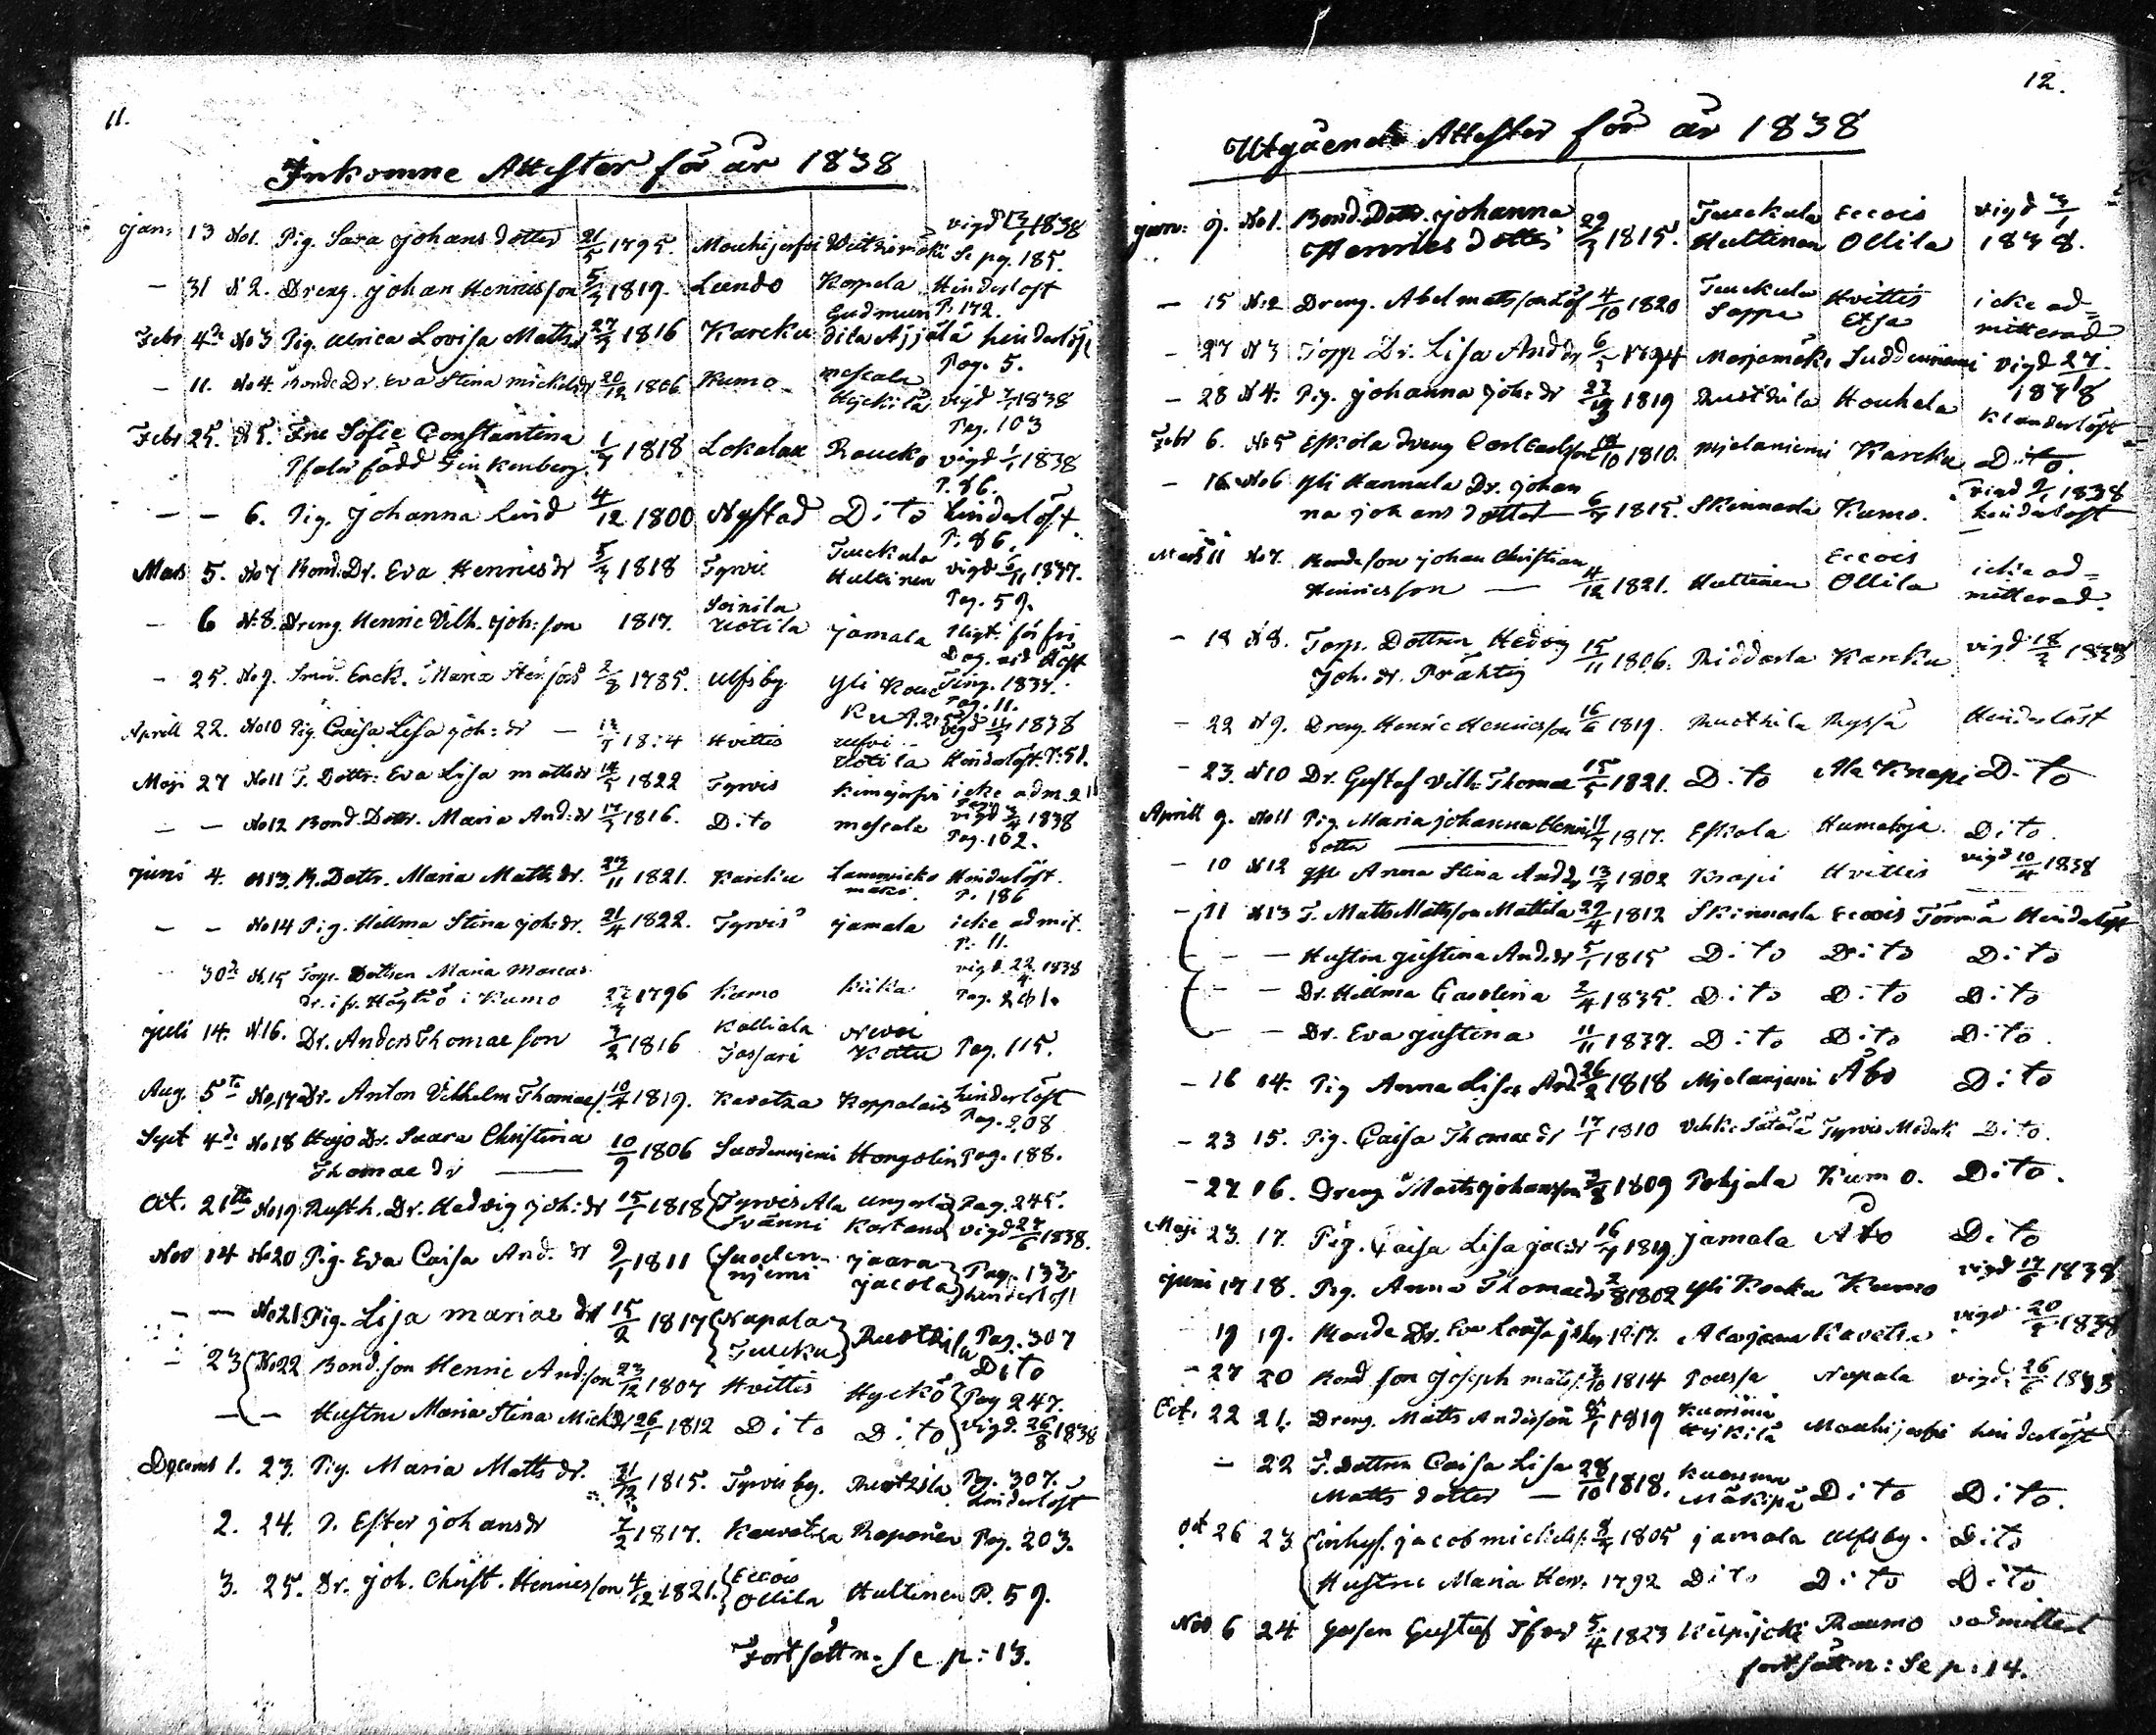 11.
Inkomne Attester för år 1838
Jan: 13 No1. Pig. Sara Johans dotter 21/5 1795. Mouhijerfvi vigd 1838
Se pg. 185.
— 31 N 2. Dreng. Johan Henricsson 5/3 1819. Leendo Koppela Hinderlöst
P. 172.
Febr 4de No 3 Pig. Ulrica Lovisa Mattsdr 27/3 1816 Karcku Gudmundila Äijälä hinderlöst
Pag. 5.
— 11. No 4. Bonde Dr. Eva Stina Mickelsdr 20/12 1806 Kumo Meskala Hyckilä vigd 1838
Pag. 103
Febr 25. N 5. Fru Sofie Constantina
Pfaler född Finkenberg 1/7 1818 Lokalax Raucko vigd 1/1 1838
P. 86.
— — 6. Pig. Johanna Lind 4/12 1800 Nystad Dito hinderlöst.
P: 86.
Mars 5. No 7 Bond: Dr. Eva Henricsdr 5/3 1818 Tyrvis Tuckula Hultinen vigd 1837.
Pag. 59.
— 6 N:8. Dreng. Henric Vilh. Joh:son 1817. Soinila Uotila Jamala
— 25. No 9. Enck. Maria 2/8 1785. Ulfsby Yli Kouc Ting. 1837.
Pag. 11.
Aprill 22. No10 Pig. Caisa Lisa Joh:dr — Hvittis Uotila vigd 1838
Hinderlöst. P: 51.
Maji 27 No11 T. Dottr: Eva Lisa Mattsdr 1822 Tyrvis Kimijerfvi icke adm.
— — No12 Bond. Dottr. Maria And:dr 17/3 1816. Dito Meskala vigd 1838
Pag. 102.
Juni 4. No13. B. Dottr. Maria Matts dr. 23/11 1821. Karcku Hinderlöst.
P. 186
— — No14 Pig. Hillma Stina Joh:dr. 21/4 1822. Tyrvis Jamala icke admit.
P: 11.
30de N.15 Torp. Dottren Maria Marcus
dr. ifr. i Kumo 1796 Kumo Kuka vigd. 22/4 1838
Pag. 261.
Juli 14. N16. Dr. Anders Thomae son 3/2 1816 Kalliala Jassari Kottu Pag. 115.
Aug. 5te No,17 Dr. Anton Vilhelm Thomaes. 10/4 1819. Kavatza Koppalais hinderlöst
Pag. 208
Sept 4de No18 Hajo Dr. Saara Christina
Thomae dr — 10/9 1806 Suodenniemi Hongolin Pag. 188.
Oct. 21te No19 Rusth. Dr. Hedvig Joh:dr 15/1 1818 Tyrvis Ala Svänni Kortand Pag. 245.
vigd 24/6 1838.
Nov 14 No20 Pig. Eva Caisa And. dr 9/1 1811 Suodenniemi Jaara Jacola Pag. 132
hinderlöst
— — No21 Pig. Lisa Mariae dr 15/2 1817 Napala Tuucku Rustkila Pag. 307
Dito
— 23 No22 Bond.son Henric And:son 23/12 1807 Hvittis Hyckö Pag 247.
— — Hustru Maria Stina Mickdr 26/1 1812 Dito Dito vigd. 26/8 1838
Decemb 1. 23. Pig. Maria Matts dr. 21/12 1815. Tyrvis by. Rustkila Pg. 307.
hinderlöst
2. 24. P. Ester Johansdr 7/2 1817. Kauvatsa Raponen Pag. 203.
3. 25. Dr. Joh. Christ. Henricsson 4/12 1821. Eccois Ollila Hultinen P. 59.
Fortsättn. se p: 13.
12.
Utgående Attester för år 1838
Jan: 9. No1. Bond. Dottr. Johanna
Henrics dotter 29/3 1815. Tuckula Hultinen Eccois Ollila vigd 1838.
— 15 N:2 Dreng. Abel Matsson Löf 4/10 1820 Tuckula Sappa Hvittis Etsa icke admitterad
— 27 N 3 Torp Dr. Lisa And dr 1794 Marjamäki Suddenniemi vigd 27.
1838
— 28 N 4. Pig. Johanna Joh:dr 1819 Rustkila Houhala Klanderlöst
Febr 6. No 5 Eskola dreng Carl Carlsson 1810. Mjelaniemi Karcku Dito.
— 16. No 6 Yli Hannula Dr. Johan
na Johans dotter — 1815. Skinnarla Kumo. vigd 1838
hinderlöst
Mars 11 No 7. Bondeson Johan Christian
Henricsson — 4/12 1821. Hultinen Eccois Ollila icke admitterad.
— 18 N 8. Torp. Dottren Hedvig
Joh. dr. Präktig 15/11 1806. Riddarla Karcku vigd 18/3 1838
— 22 N 9. Dreng Henric Henricsson 16/6 1819. Rustkila Ryssä Hinderlöst
— 23. N10 Dr. Gustaf Vilh. Thomae 15/5 1821. Dito Ala Knapi Dito
Aprill 9. No11 Pig. Maria Johanna Henric
dotter — 1817. Eskola Humaloja. Dito.
— 10 N12 Anna Stina And dr 13/7 1802 Knapi Hvittis vigd 10/4 1838
— 11 N13 T. Matts Mattsson Mattila 29/4 1812 Skinnarla Eccois Törmä Hinderlöst
— — Hustru Justina And:dr 5/1 1815 Dito Dito Dito
— — Dr. Hillma Carolina 2/4 1835. Dito Dito Dito
— — Dr. Eva Justina 11/11 1837. Dito Dito Dito.
— 16 14. Pig Anna Lisa And. 26/2 1818 Mjelanjemi Åbo Dito
— 23 15. Pig. Caisa Thomae dr 17/1 1810 Tyrvis Dito.
— 27 16. Dreng Matts Johansson 1809 Pohjala Kumo. Dito.
Maji 23. 17. Pig. Caisa Lisa Jac:dr 16/7 1819 Jamala Åbo Dito
Juni 17 18. Pig. Anna Thomaedr 2/8 1802 Yli Kouku Kumo vigd 17/6 1838
19 19. Bonde Dr. Eva Lovisa 1817. Kavatsa vigd 20/5 1838
— 27 20 Bond son Joseph Mats. 3/10 1814 Poussa Napala vigd. 26/6 1838
Oct. 22 21. Dreng. Matts Andersson 1819 Kuorina Hyckilä Mouhijerfvi hinderlöst
— 22 T. Dottren Caisa Lisa
Matts dotter — 28/10 1818. Mäkipä Dito Dito.
Oct 26 23 Inhys. Jacob Mickels: 1805 Jamala Ulfsby. Dito
Hustru Maria Hen. 1792 Dito Dito Dito
Nov 6 24 Gossen Gustaf 5/4 1823 Kilpijoki Raumo oadmitterd
fortsättn: Se p: 14.